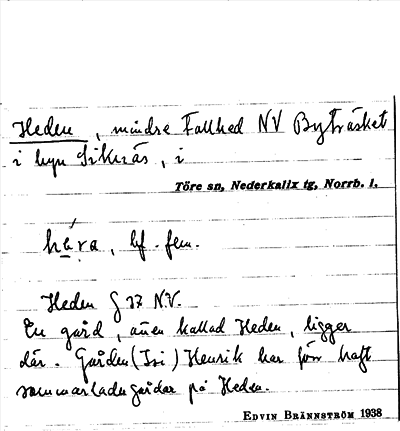 Heden, mindre Tallhed NV Byträsket
i byn Siknäs, i
Töre sn, Nederkalix tg, Norrb. l.
, bf. fem.
Heden § 37 N.V.
En gård, även kallad Heden, ligger
där. Gården (Isi) Henrik har förr haft
sommarladugårdar på Heden.
EDVIN BRÄNNSTRÖM 1938